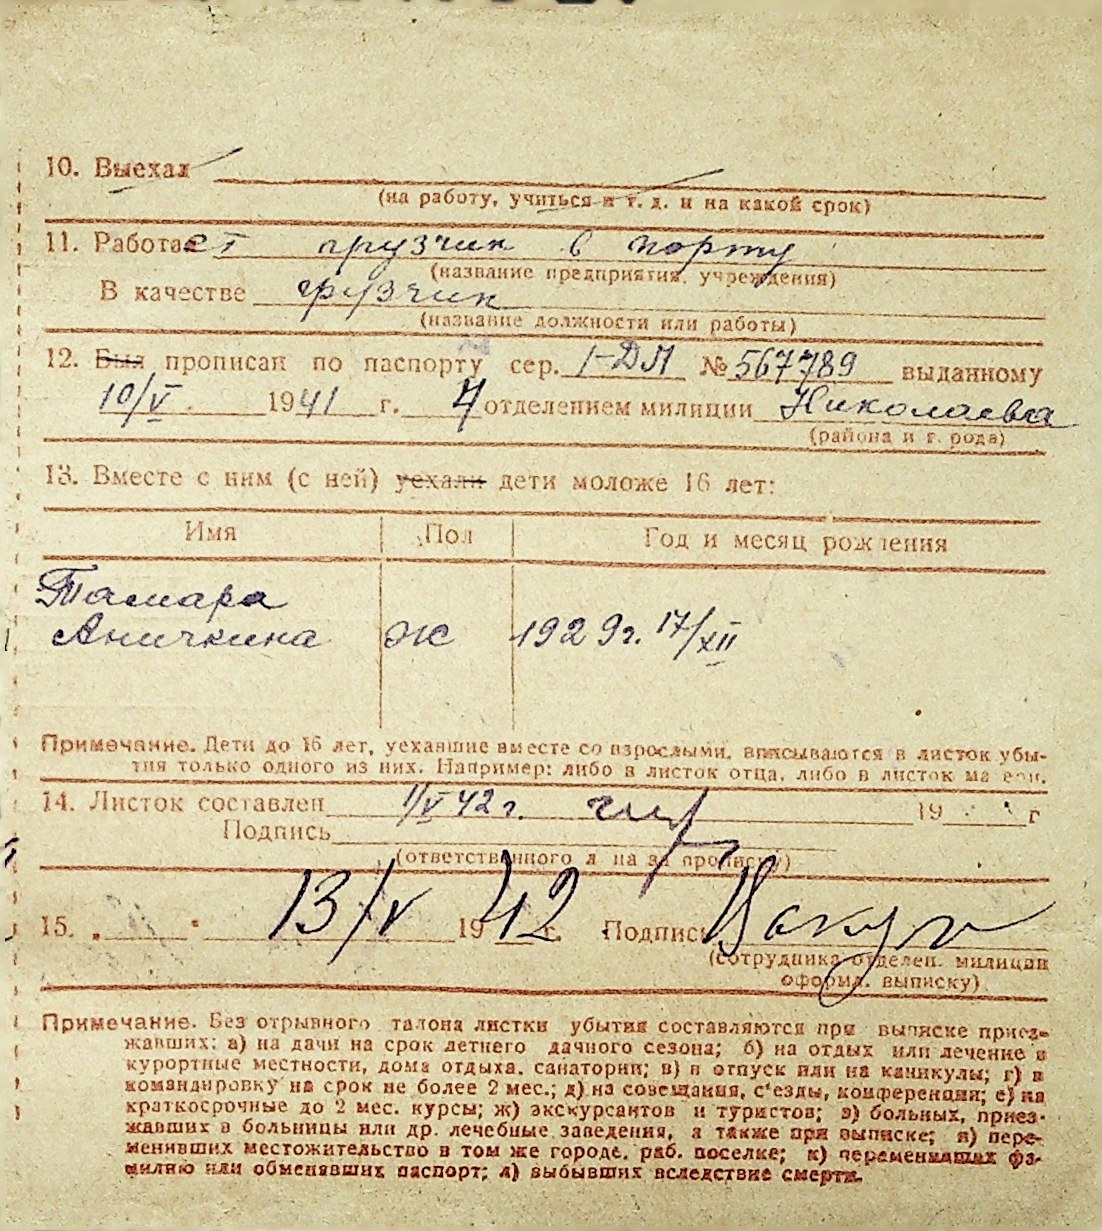 10. Выехал
(на работу, учиться и т. д. и на какой срок)
11. Работает грузчик в порту
(название предприятия, учреждения)
В качестве грузчик
(название должности или работы)
12. Был прописан по паспорту сер. I-ДМ № 567789 выданному
10/V. 1941 г. 4 отделением милиции Николаева
(района и города)
13. Вместе с ним (с ней) уехали дети моложе 16 лет:
Имя Пол Год и месяц рождения
Тамара
Аничкина Ж 1929г. 17/XII
Примечание. Дети до 16 лет, уехавшие вместе со взрослыми, вписываются в листок убы-
тия только одного из них. Например: либо в листок отца, либо в листок матери.
14. Листок составлен 1/V 42 г. 19 г
Подпись
(ответственного л на за прописку)
15. „ “ 13/V 1942 г. Подпись
(сотрудника отделен. милиции
оформ. выписку)
Примечание. Без отрывного талона листки убытия составляются при выписке приез-
жавших: а) на дачи на срок летнего дачного сезона; б) на отдых или лечение в
курортные местности, дома отдыха, санатории; в) в отпуск или на каникулы; г) в
командировку на срок не более 2 мес.; д) на совещания, с'езды, конференции; е) на
краткосрочные до 2 мес. курсы; ж) экскурсантов и туристов; з) больных, приез-
жавших в больницы или др. лечебные заведения, а также при выписке; и) пере-
менивших местожительство в том же городе, раб. поселке; к) переменивших фа-
милию или обменявших паспорт; л) выбывших вследствие смерти.